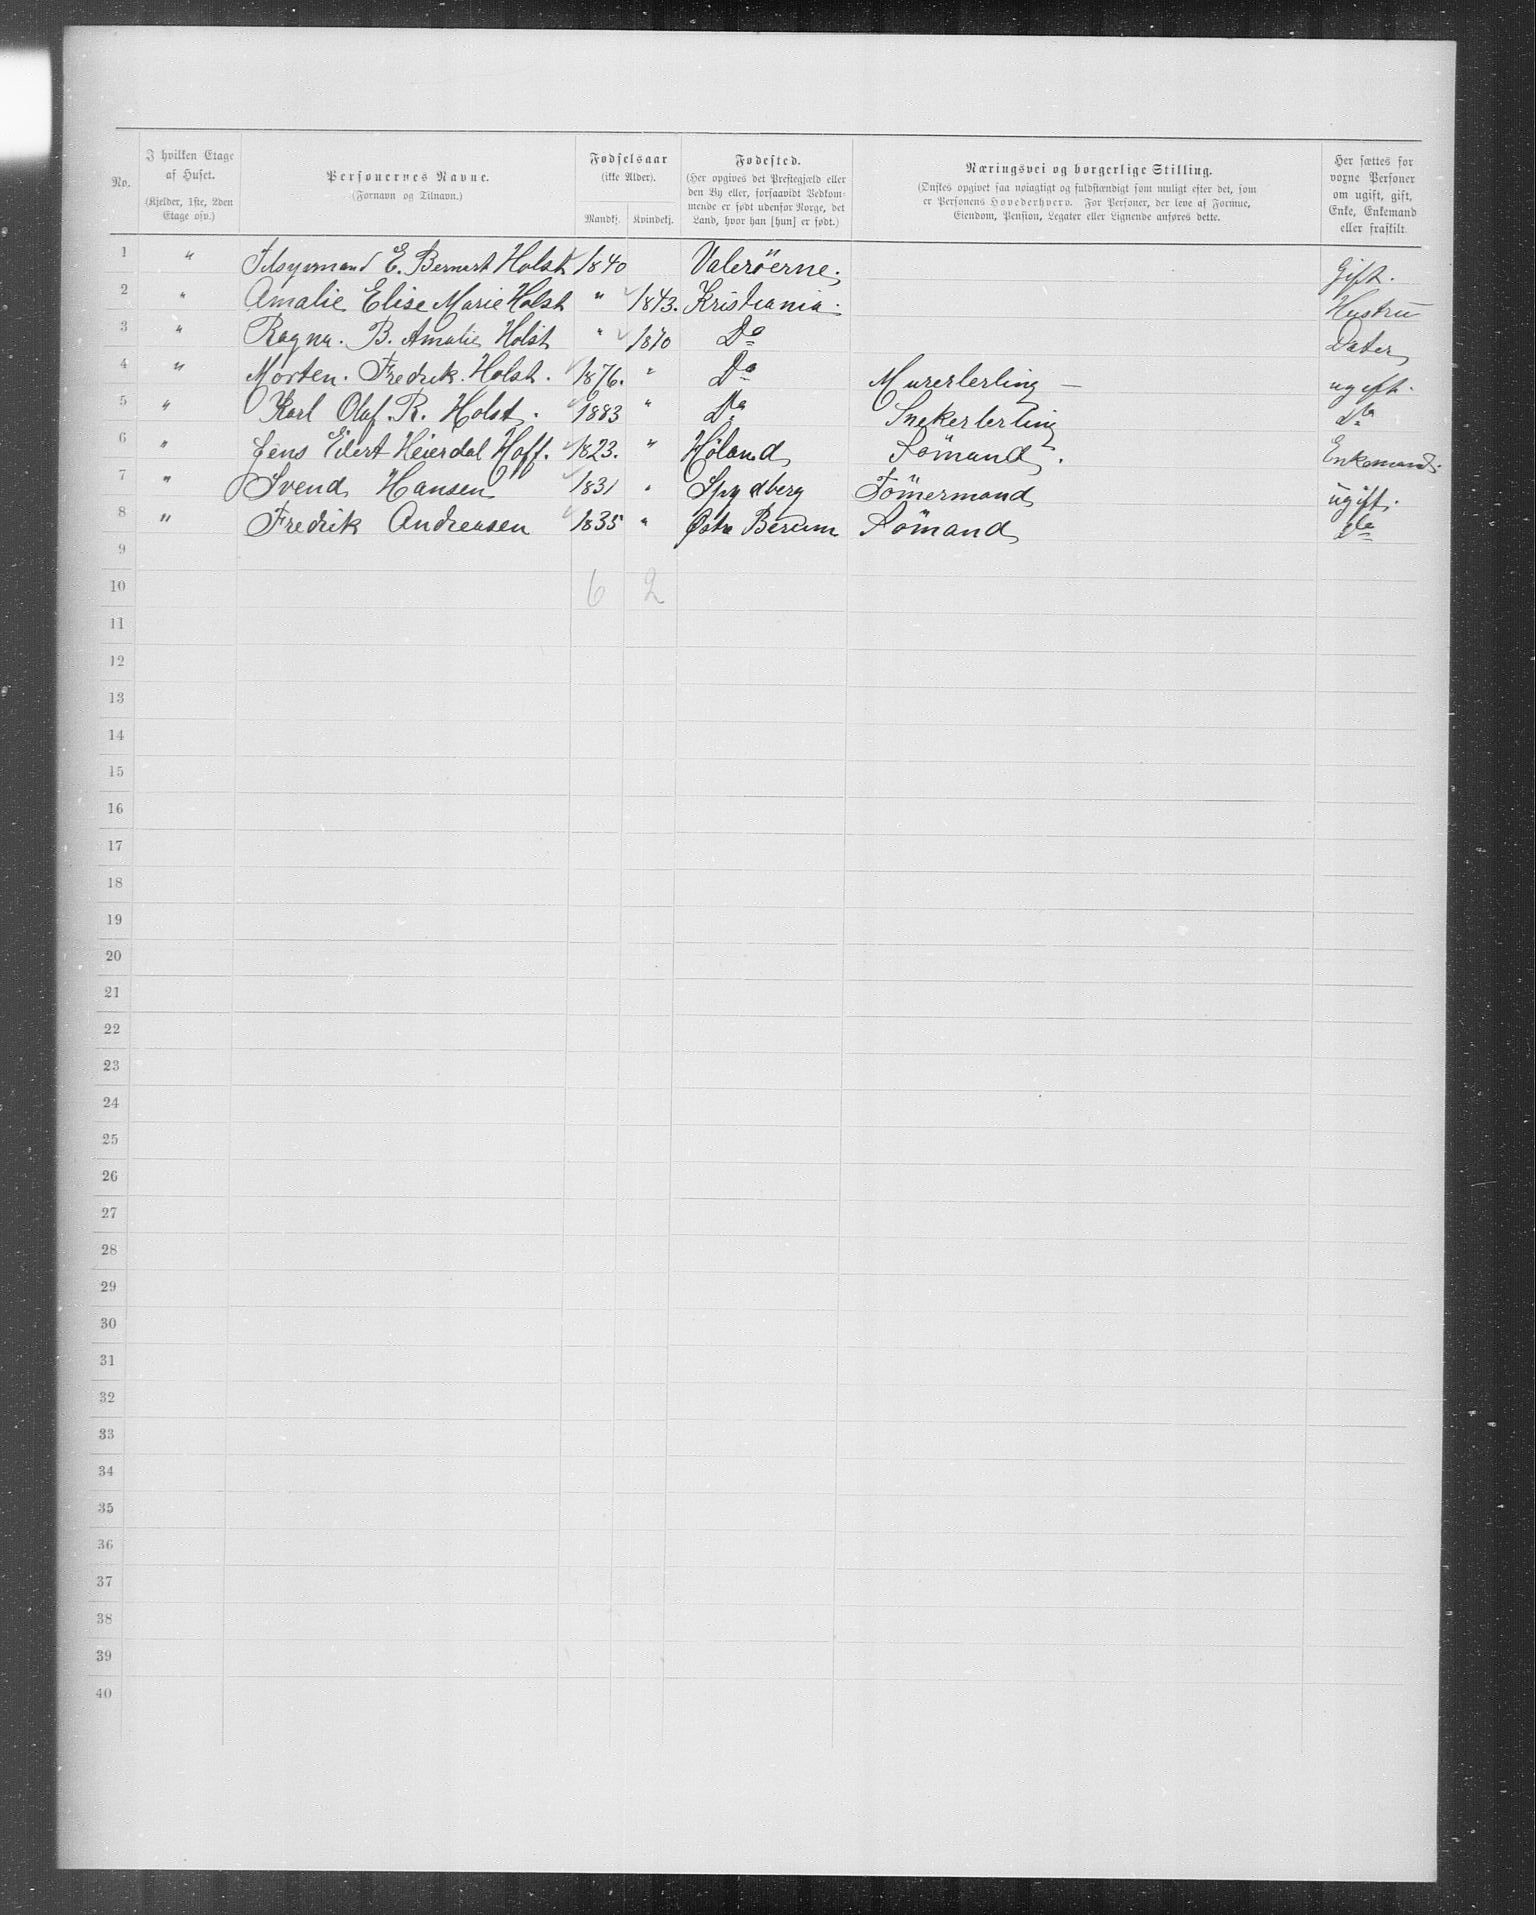 No.
I hvilken Etage af Huset.
(Kjelder, 1ste, 2den Etage osv.)
Personernes Navne.
(Fornavn og Tilnavn.)
Fødselsaar
(ikke Alder).
Mandkj. Kvindekj.
Fødested.
(Her opgives det Prestegjæld eller
den By eller, forsaavidt Vedkom-
mende er født udenfor Norge, det
Land, hvor han [hun] er født.)
Næringsvei og borgerlige Stilling.
(Ønskes opgivet saa nøiagtigt og fuldstændigt som muligt efter det, som
er Personens Hovederhverv. For Personer, der leve af Formue,
Eiendom, Pension, Legater eller Lignende anføres dette.
Her sættes for
voxne Personer
om ugift, gift,
Enke, Enkemand
eller fraskilt.
1 " E. Bernert Holst 1840 Valerøerne. Gift.
2 " Amalie Elise Marie Holst " 1843. Kristiania. Hustru
3 " Ragna. B. Amalie Holst " 1870 Do Dater
4 " Morten. Fredrik. Holst. 1876. " Do Murerlerling — ugift.
5 " Karl Olaf. R. Holst. 1883 " Do Snekerlerling do
6 " Jens Eilert Heierdal Hoff. 1823. " Höland Sömand. Enkemand.
7 " Svend Hansen 1831 " Spydberg Tömermand ugift.
8 " Fredrik Andreasen 1835 " Østre Berum Sömand do
9
10 6 2
11
12
13
14
15
16
17
18
19
20
21
22
23
24
25
26
27
28
29
30
31
32
33
34
35
36
37
38
39
40